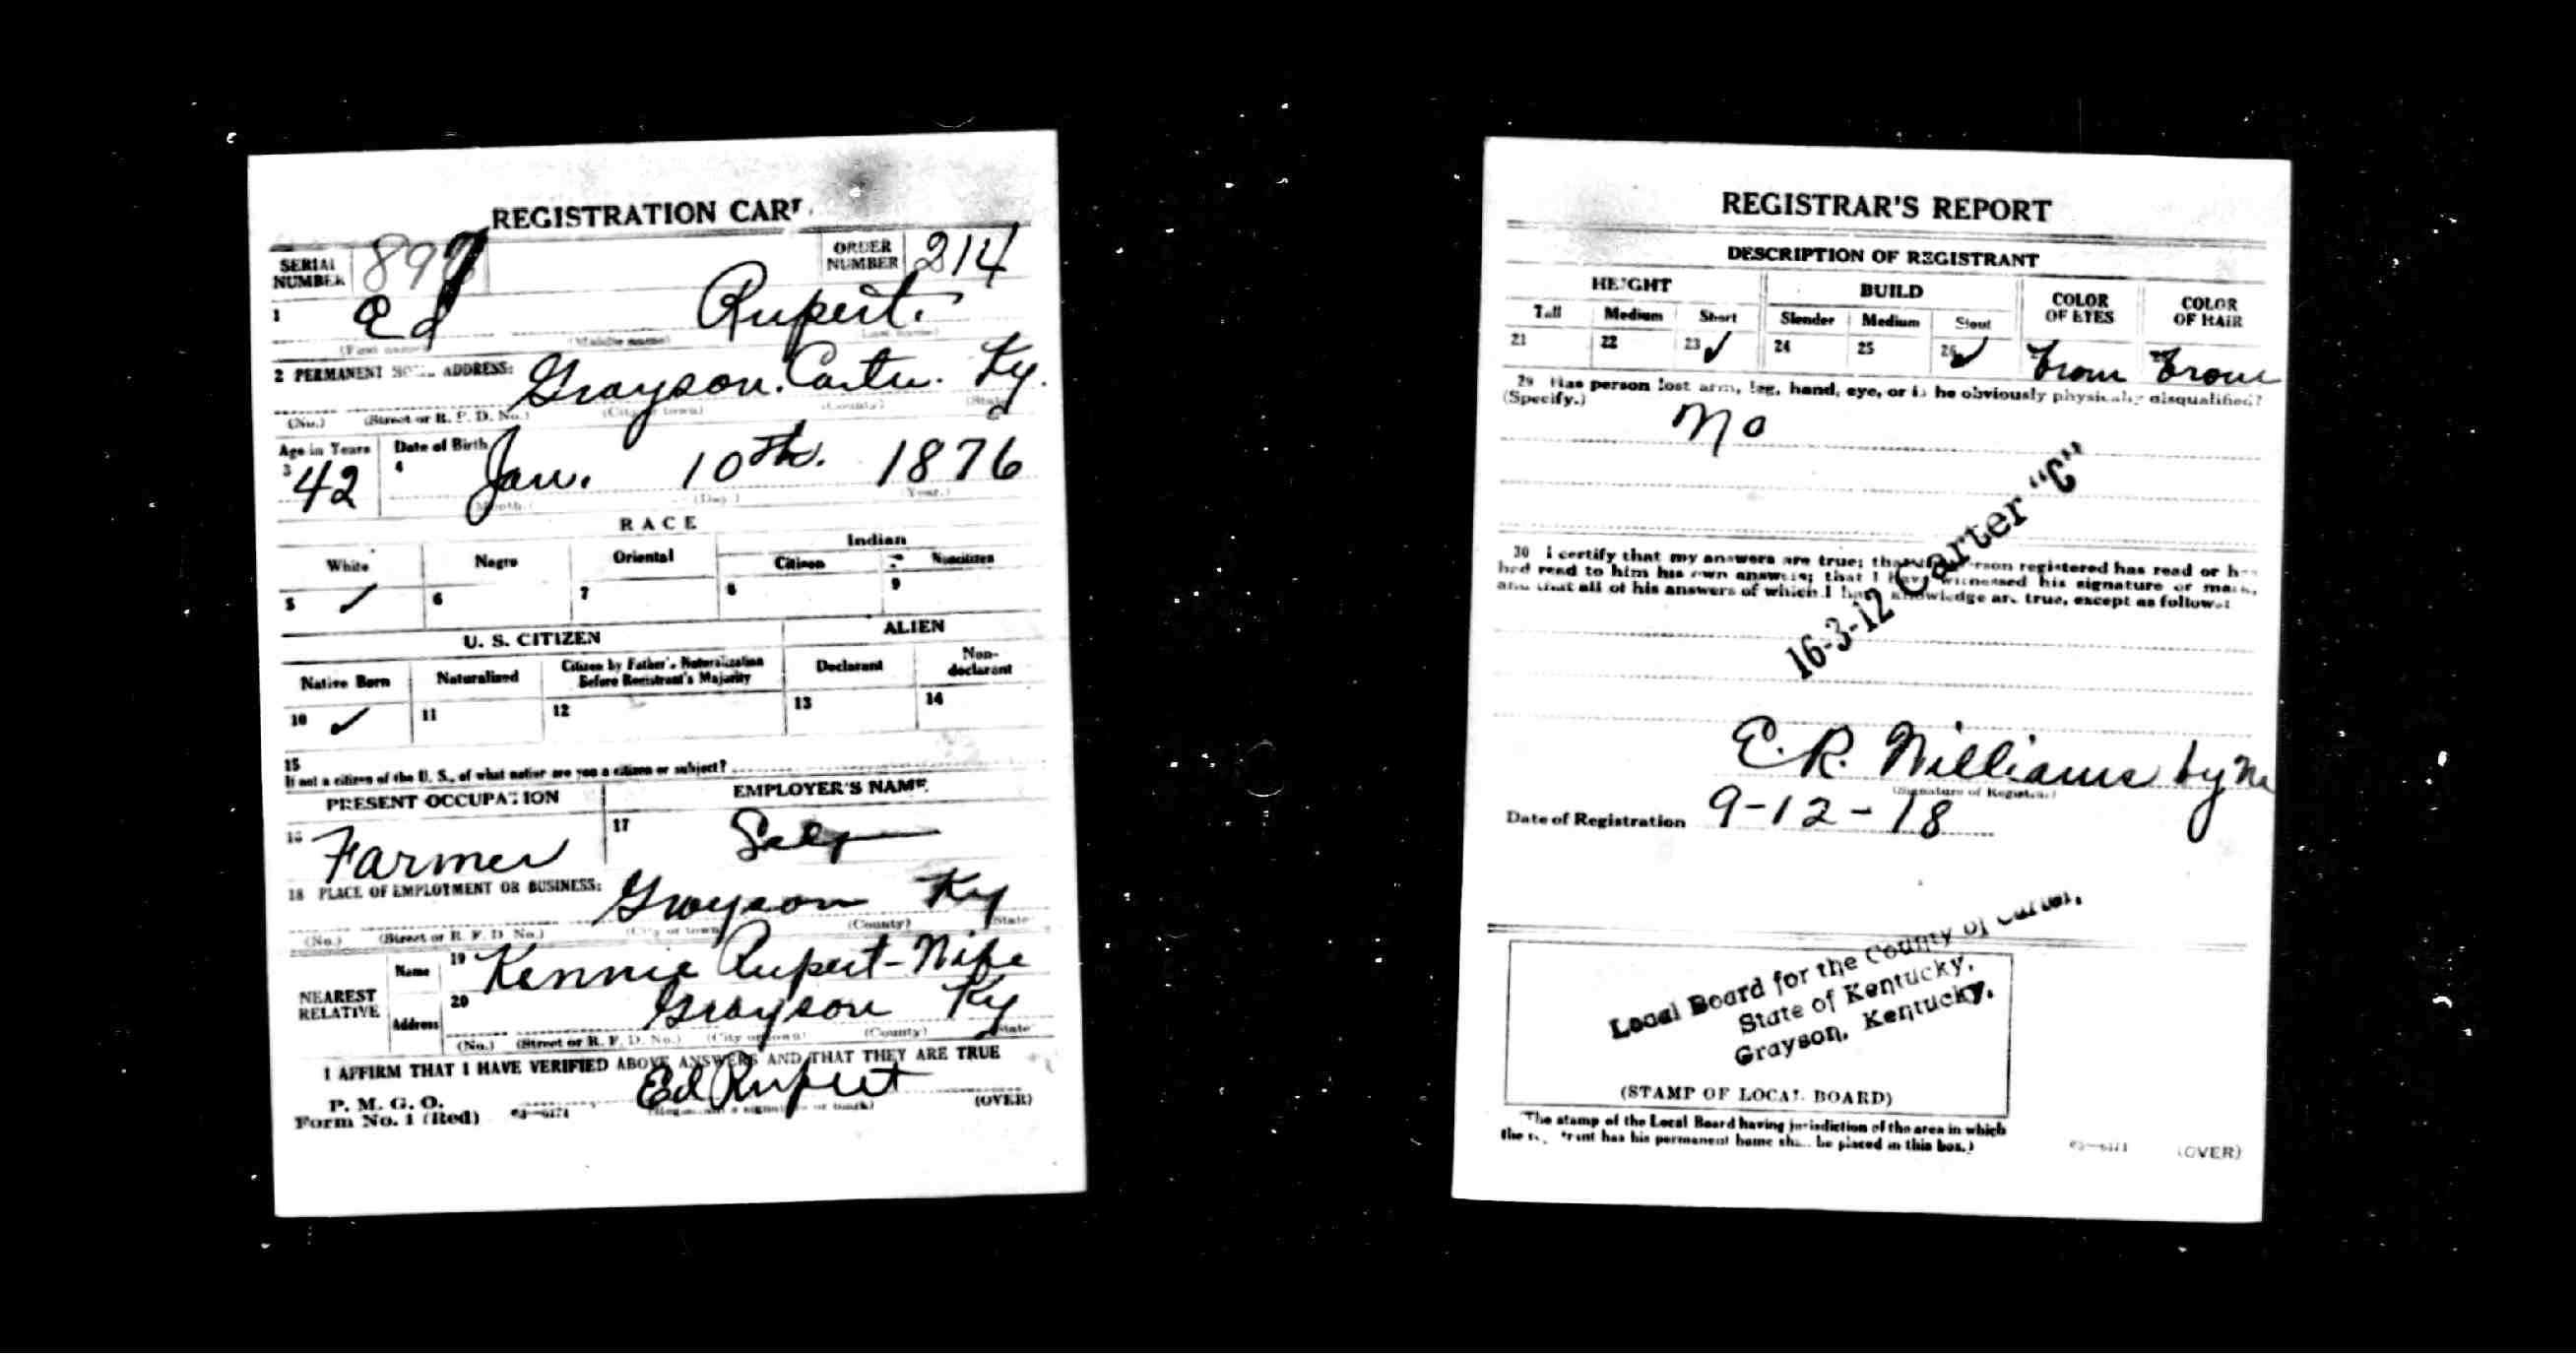 REGISTRATION CARD
SERIAL NUMBER 89
ORDER NUMBER 214
1 Ed Rupert.
(First name) (Middle name) (Last name)
2 PERMANENT HOME ADDRESS: Grayson. Carter. Ky.
(No.) (Street or R. F. D. No.) (City or town) (County) (State)
Age in Years Date of Birth
3 42 4 Jan. 10th. 1876
(Month.) (Day.) (Year.)
RACE
White Negro Oriental Indian
Citizen Noncitizen
5 ✓ 6 7 8 9
U. S. CITIZEN ALIEN
Native Born Naturalized Citizen by Father's Naturalization Before Registrant's Majority Declarant Non-declarant
10 ✓ 11 12 13 14
15
If not a citizen of the U. S., of what nation are you a citizen or subject?
PRESENT OCCUPATION EMPLOYER'S NAME
16 Farmer 17 Self
18 PLACE OF EMPLOYMENT OR BUSINESS: Grayson Ky
(No.) (Street or R. F. D. No.) (City or town) (County) (State)
NEAREST RELATIVE
Name 19 Kennie Rupert-Wife
Address 20 Grayson Ky
(No.) (Street or R. F. D. No.) (City or town) (County) (State)
I AFFIRM THAT I HAVE VERIFIED ABOVE ANSWERS AND THAT THEY ARE TRUE
P. M. G. O.
Form No. 1 (Red) 03—6171 Ed Rupert (OVER)
(Registrant's signature or mark)
REGISTRAR'S REPORT
DESCRIPTION OF REGISTRANT
HEIGHT BUILD COLOR OF EYES COLOR OF HAIR
Tall Medium Short Slender Medium Stout
21 22 23 ✓ 24 25 26 ✓ Brown Brown
29 Has person lost arm, leg, hand, eye, or is he obviously physically disqualified?
(Specify.) No
30 I certify that my answers are true; that the person registered has read or has
had read to him his own answers; that I have witnessed his signature or mark,
and that all of his answers of which I have knowledge are true, except as follows:
16-3-12 Carter "C"
E. R. Williams by
(Signature of Registrar)
Date of Registration 9-12-18
Local Board for the County of Carter,
State of Kentucky,
Grayson, Kentucky.
(STAMP OF LOCAL BOARD)
(The stamp of the Local Board having jurisdiction of the area in which
the registrant has his permanent home shall be placed in this box.)
03—6171 (OVER)